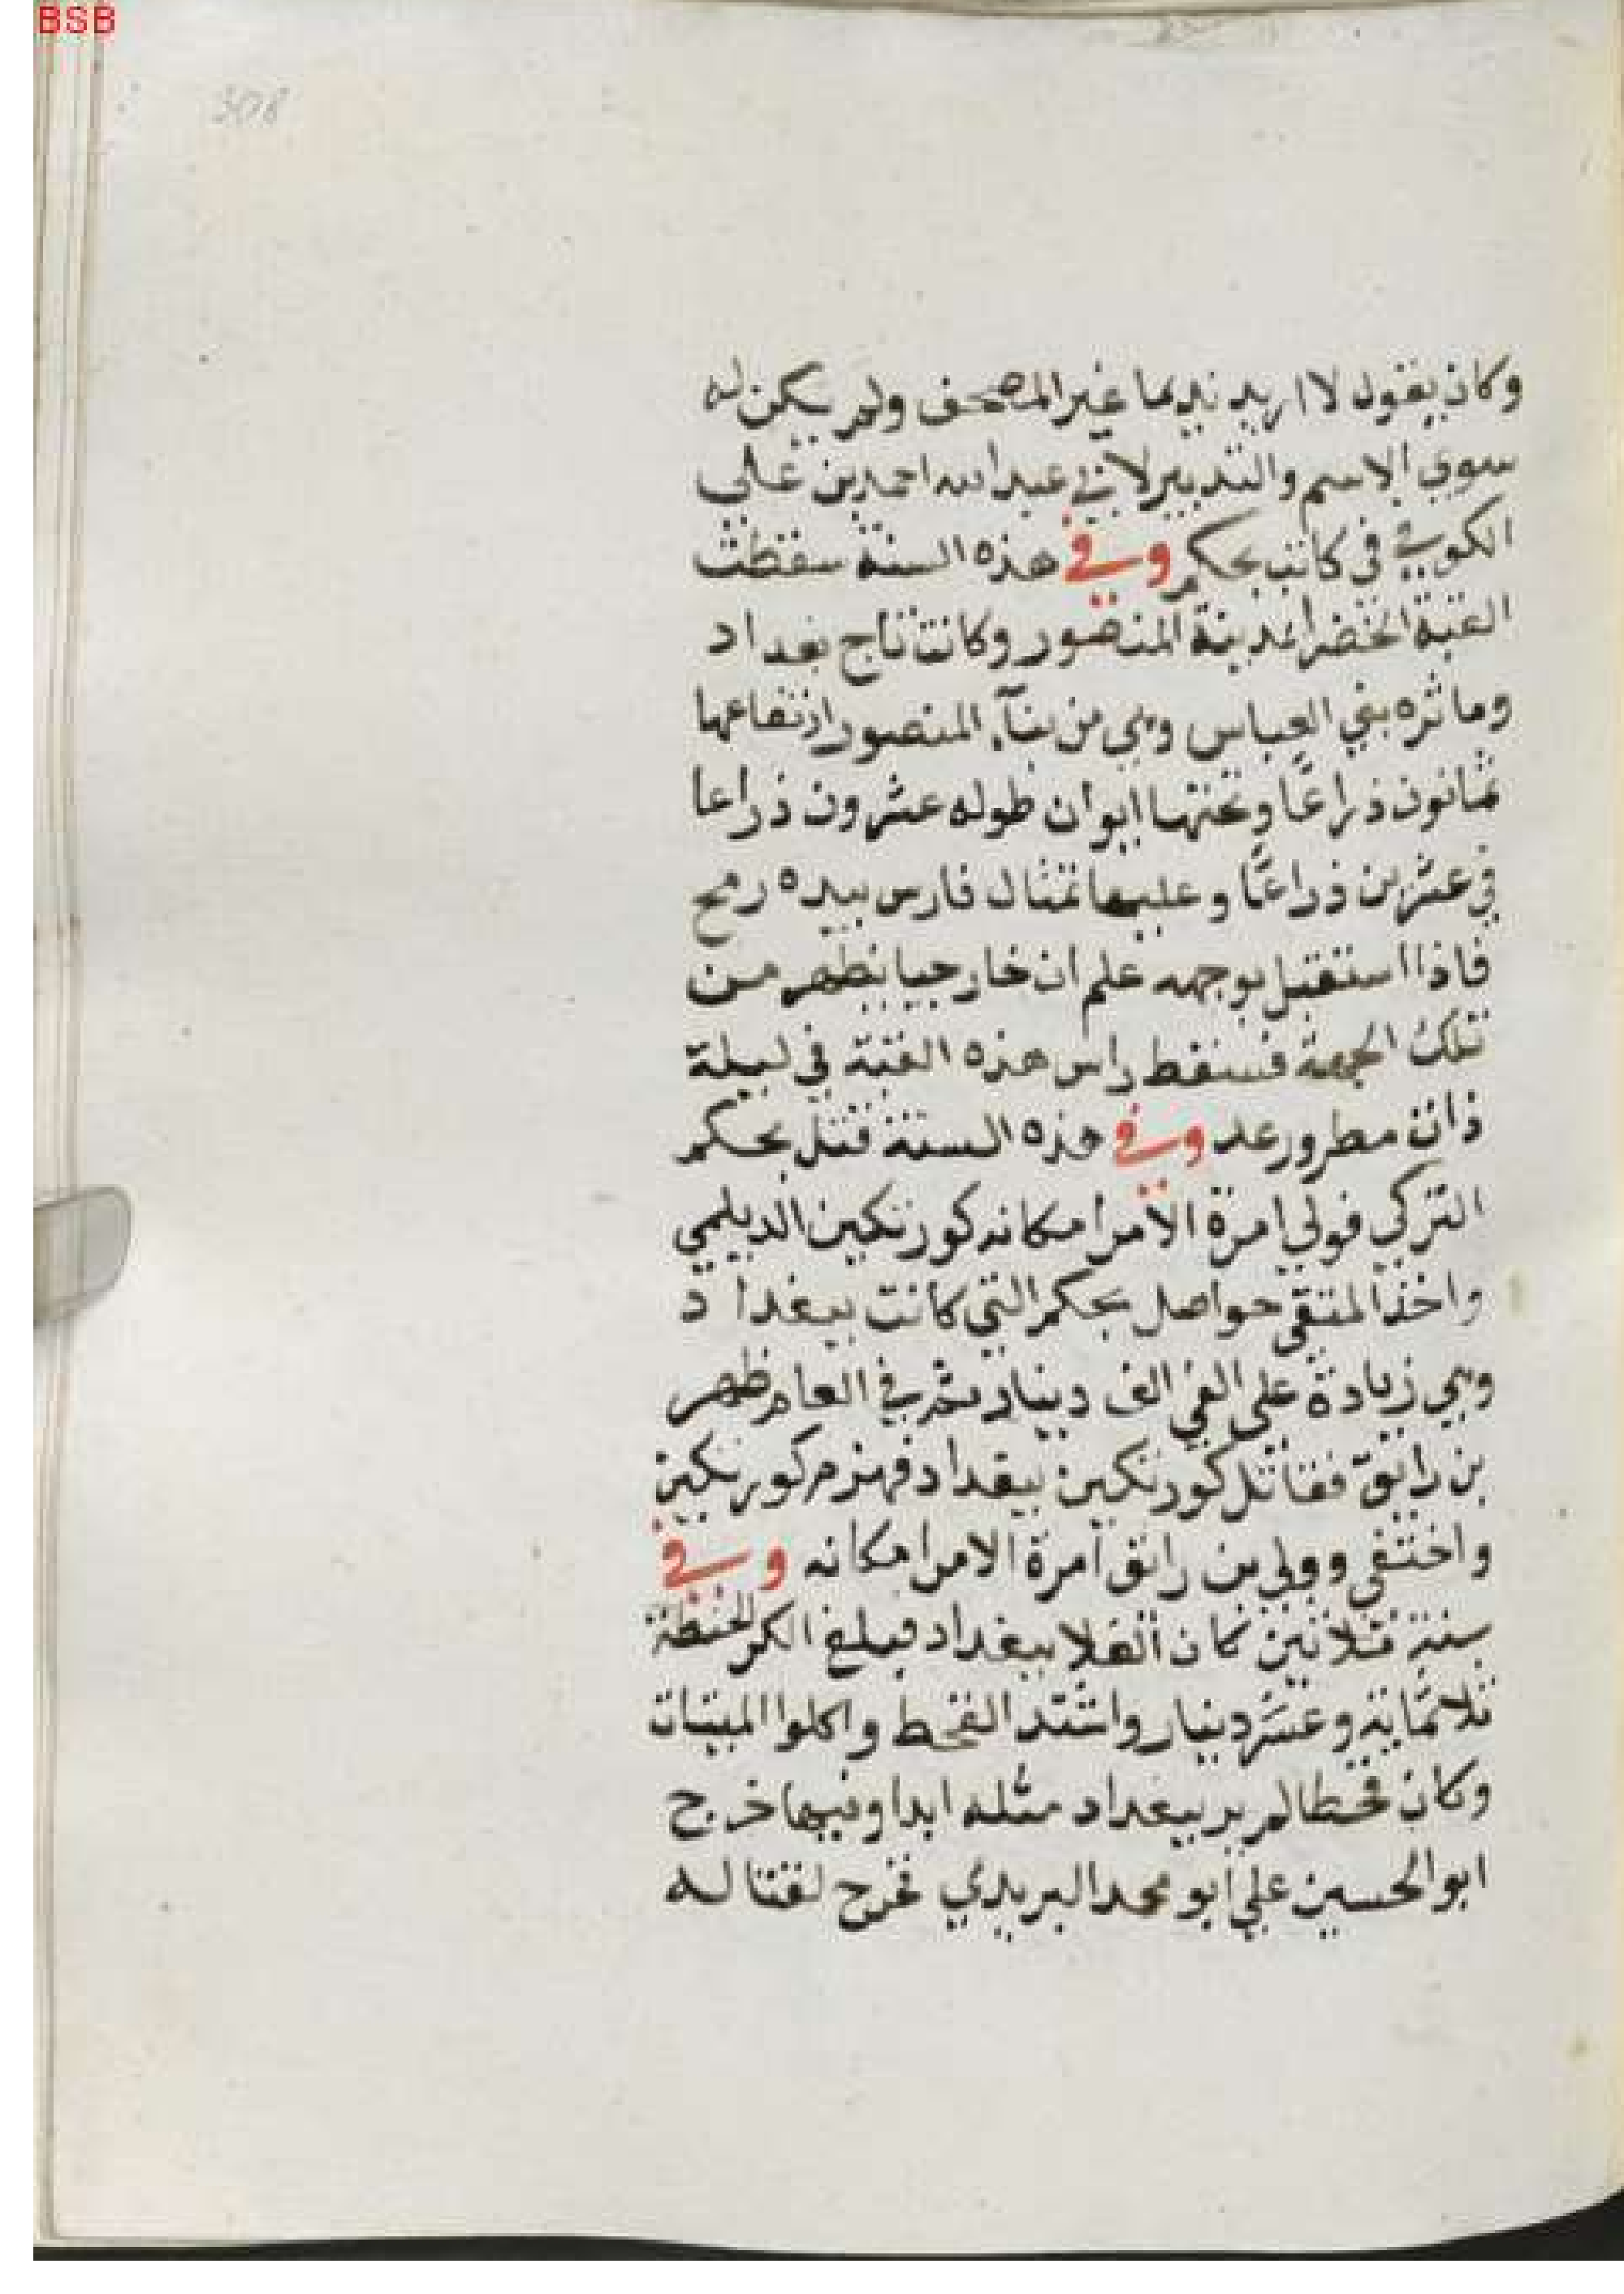 BSB
308
وكان يقول لا اريد نديما غير المصحف ولم يكن له
سوي الاسم والتدبير لابي عبد الله احمد بن علي
الكوفي في كاتب بجكم وفي هذه السنة سقطت
القبة الخضرا بمدينة المنصور وكانت تاج بغداد
وماثره بني العباس وهي من بناء المنصور ارتفاعها
ثمانون ذراعًا وتحتها ايوان طوله عشرون ذراعا
في عشرين ذراعًا وعليها تمثال فارس بيده رمح
فاذا استقبل بوجهه علم ان خارجيا يظهر من
تلك الجهة فسقط راس هذه القبة في ليلة
ذات مطر ورعد وفي هذه السنة قتل بجكم
التركي فولي امرة الامرا مكانه كورتكين الديلمي
واخذ المتقي حواصل بجكم التي كانت ببغداد
وهي زيادة علي الفي الف دينار ثم في العام ظهر
بن رائق فقاتل كورتكين ببغداد فهزم كورتكين
واختفي وولي بن رائق امرة الامرا مكانه وفي
سنة ثلاثين كان الغلا ببغداد فبلغ الكر الحنطة
ثلاثماية وعشر دينار واشتد القحط واكلوا الميتات
وكان قحطا لم ير ببغداد مثله ابدا وفيها خرج
ابو الحسين علي ابو محمد البريدي فخرج لقتاله